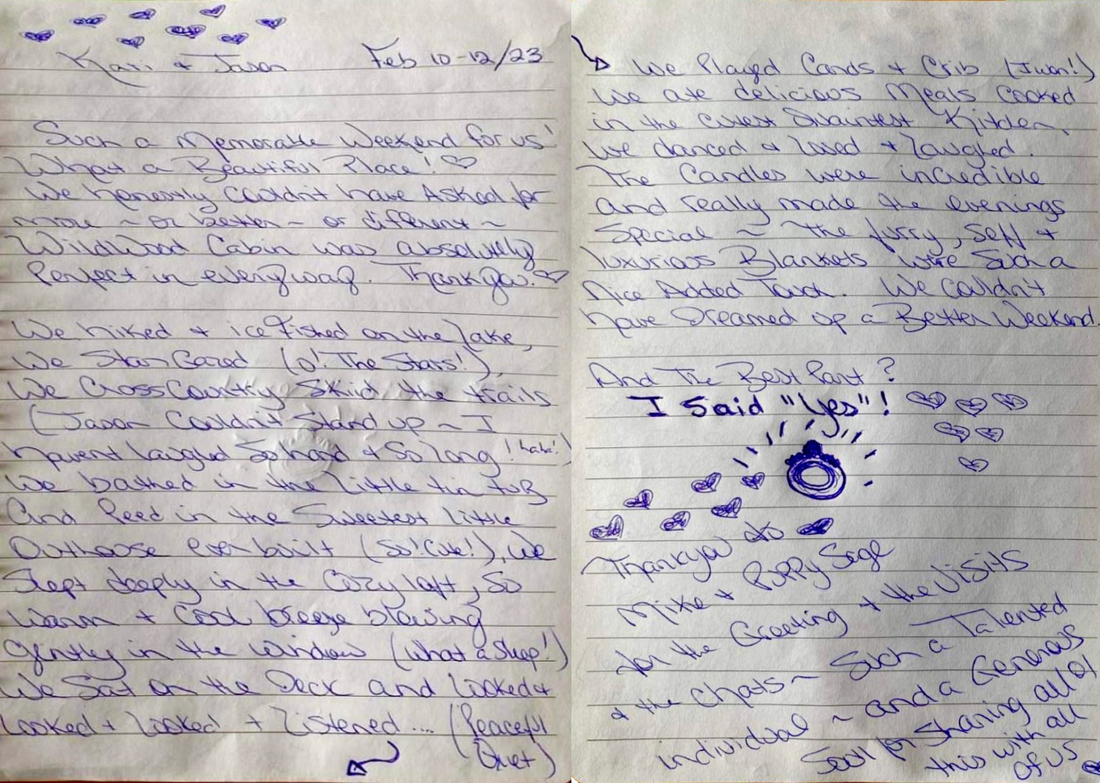 Kari + Jason Feb 10-12/23
Such a Memorable Weekend for us!
What a Beautiful Place!
We honestly couldn't have Asked for
more ~ or better ~ or different ~
WildWood Cabin was absolutely
Perfect in everyway. Thankyou!
We hiked + ice fished on the lake,
We Star Gazed (o! The Stars!),
We CrossCountry Skiid the trails
(Jason Couldn't Stand up ~ I
havent laughed So hard + So long !haha!)
We bathed in the little tin tub
and Peed in the Sweetest Little
Outhouse ever built (So! Cute!), We
Slept deeply in the Cozy loft, So
Warm + Cool breeze blowing
gently in the window (what a Sleep!)
We Sat on the Deck and looked +
looked + looked + listened .... (Peaceful
Quiet)
We Played Cards + Crib (I won!)
We ate delicious Meals Cooked
in the cutest Quaintest Kitchen,
We danced + lived + laughed.
The Candles were incredible
and really made the evenings
Special ~ The furry, Soft +
luxurious Blankets were Such a
Nice Added Touch. We Couldn't
have Dreamed up a Better Weekend.
And The Best Part?
I Said "Yes"!
Thankyou to
Mike + Puppy Sage
for the Greeting + the Visits
+ the Chats ~ Such a Talented
individual ~ and a Generous
Soul for Sharing all of
this with all
of us